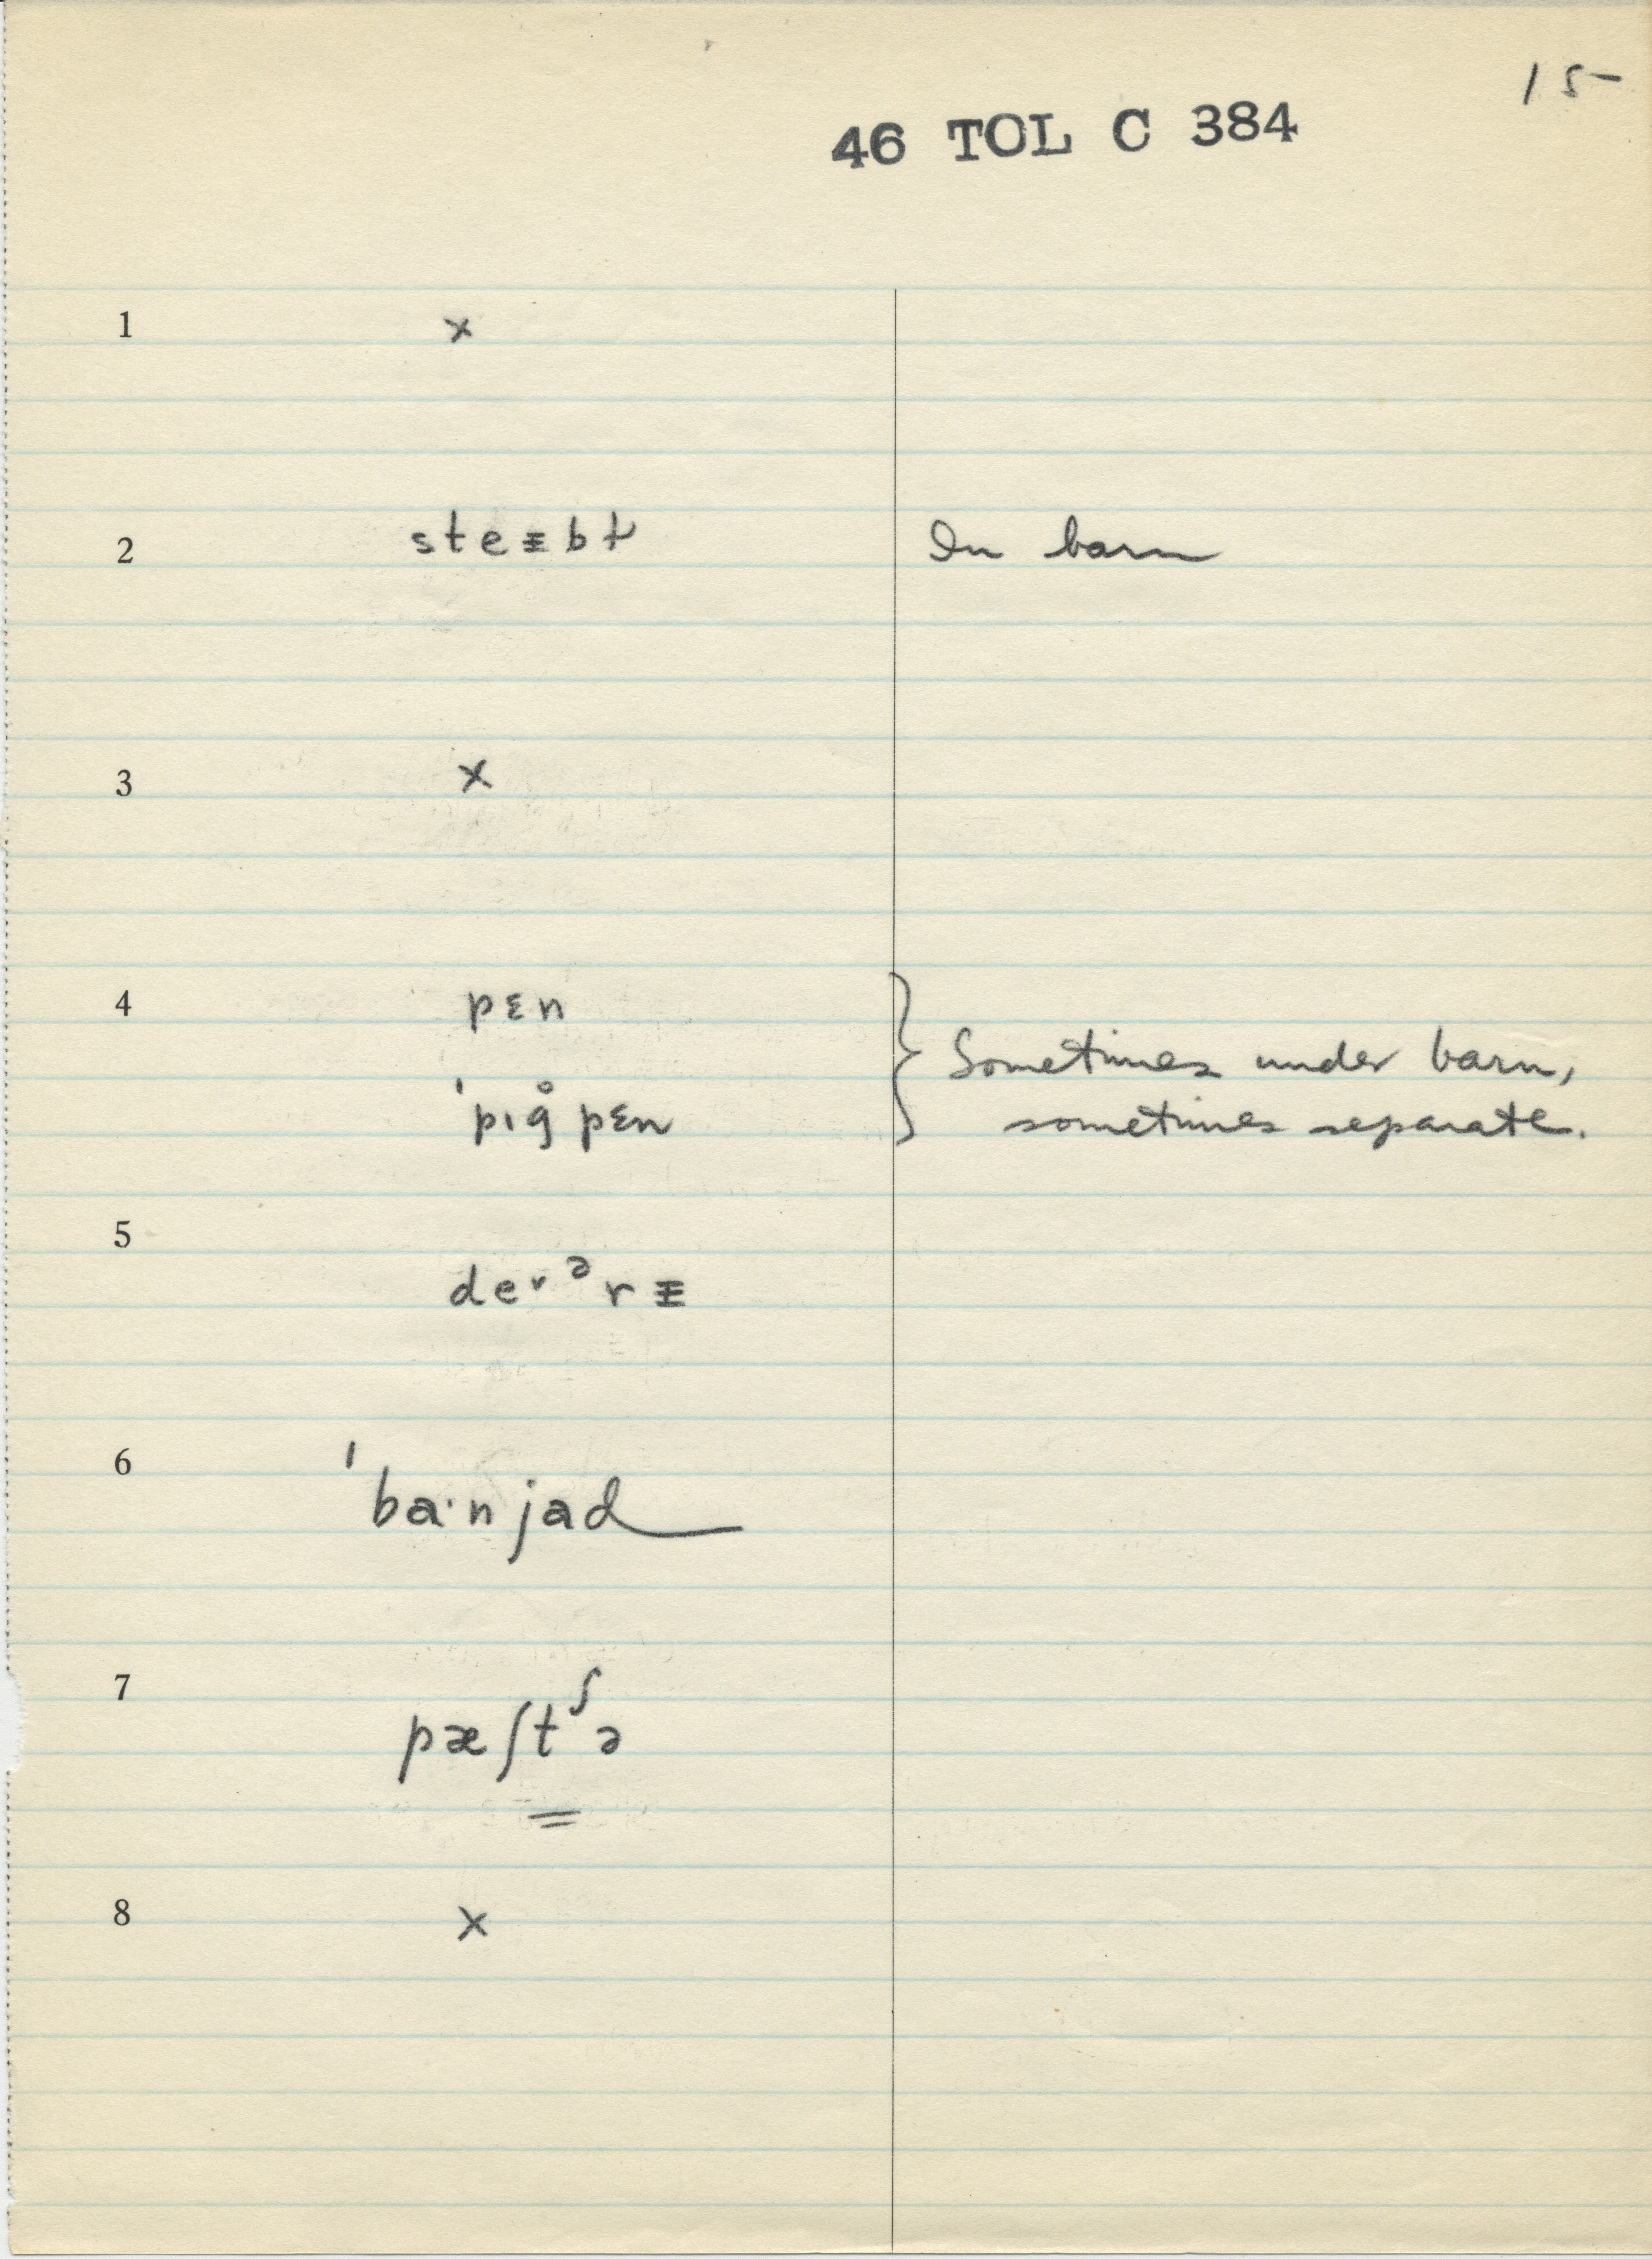 15
46 TOL C 384
1 ×
2 steɪbɫ In barn
3 ×
4 pɛn
ˈpɪg̊pɛn } Sometimes under barn,
sometimes separate.
5 de˅ᵊrɪ
6 ˈba·njad
7 pæʃtᶴə
8 ×